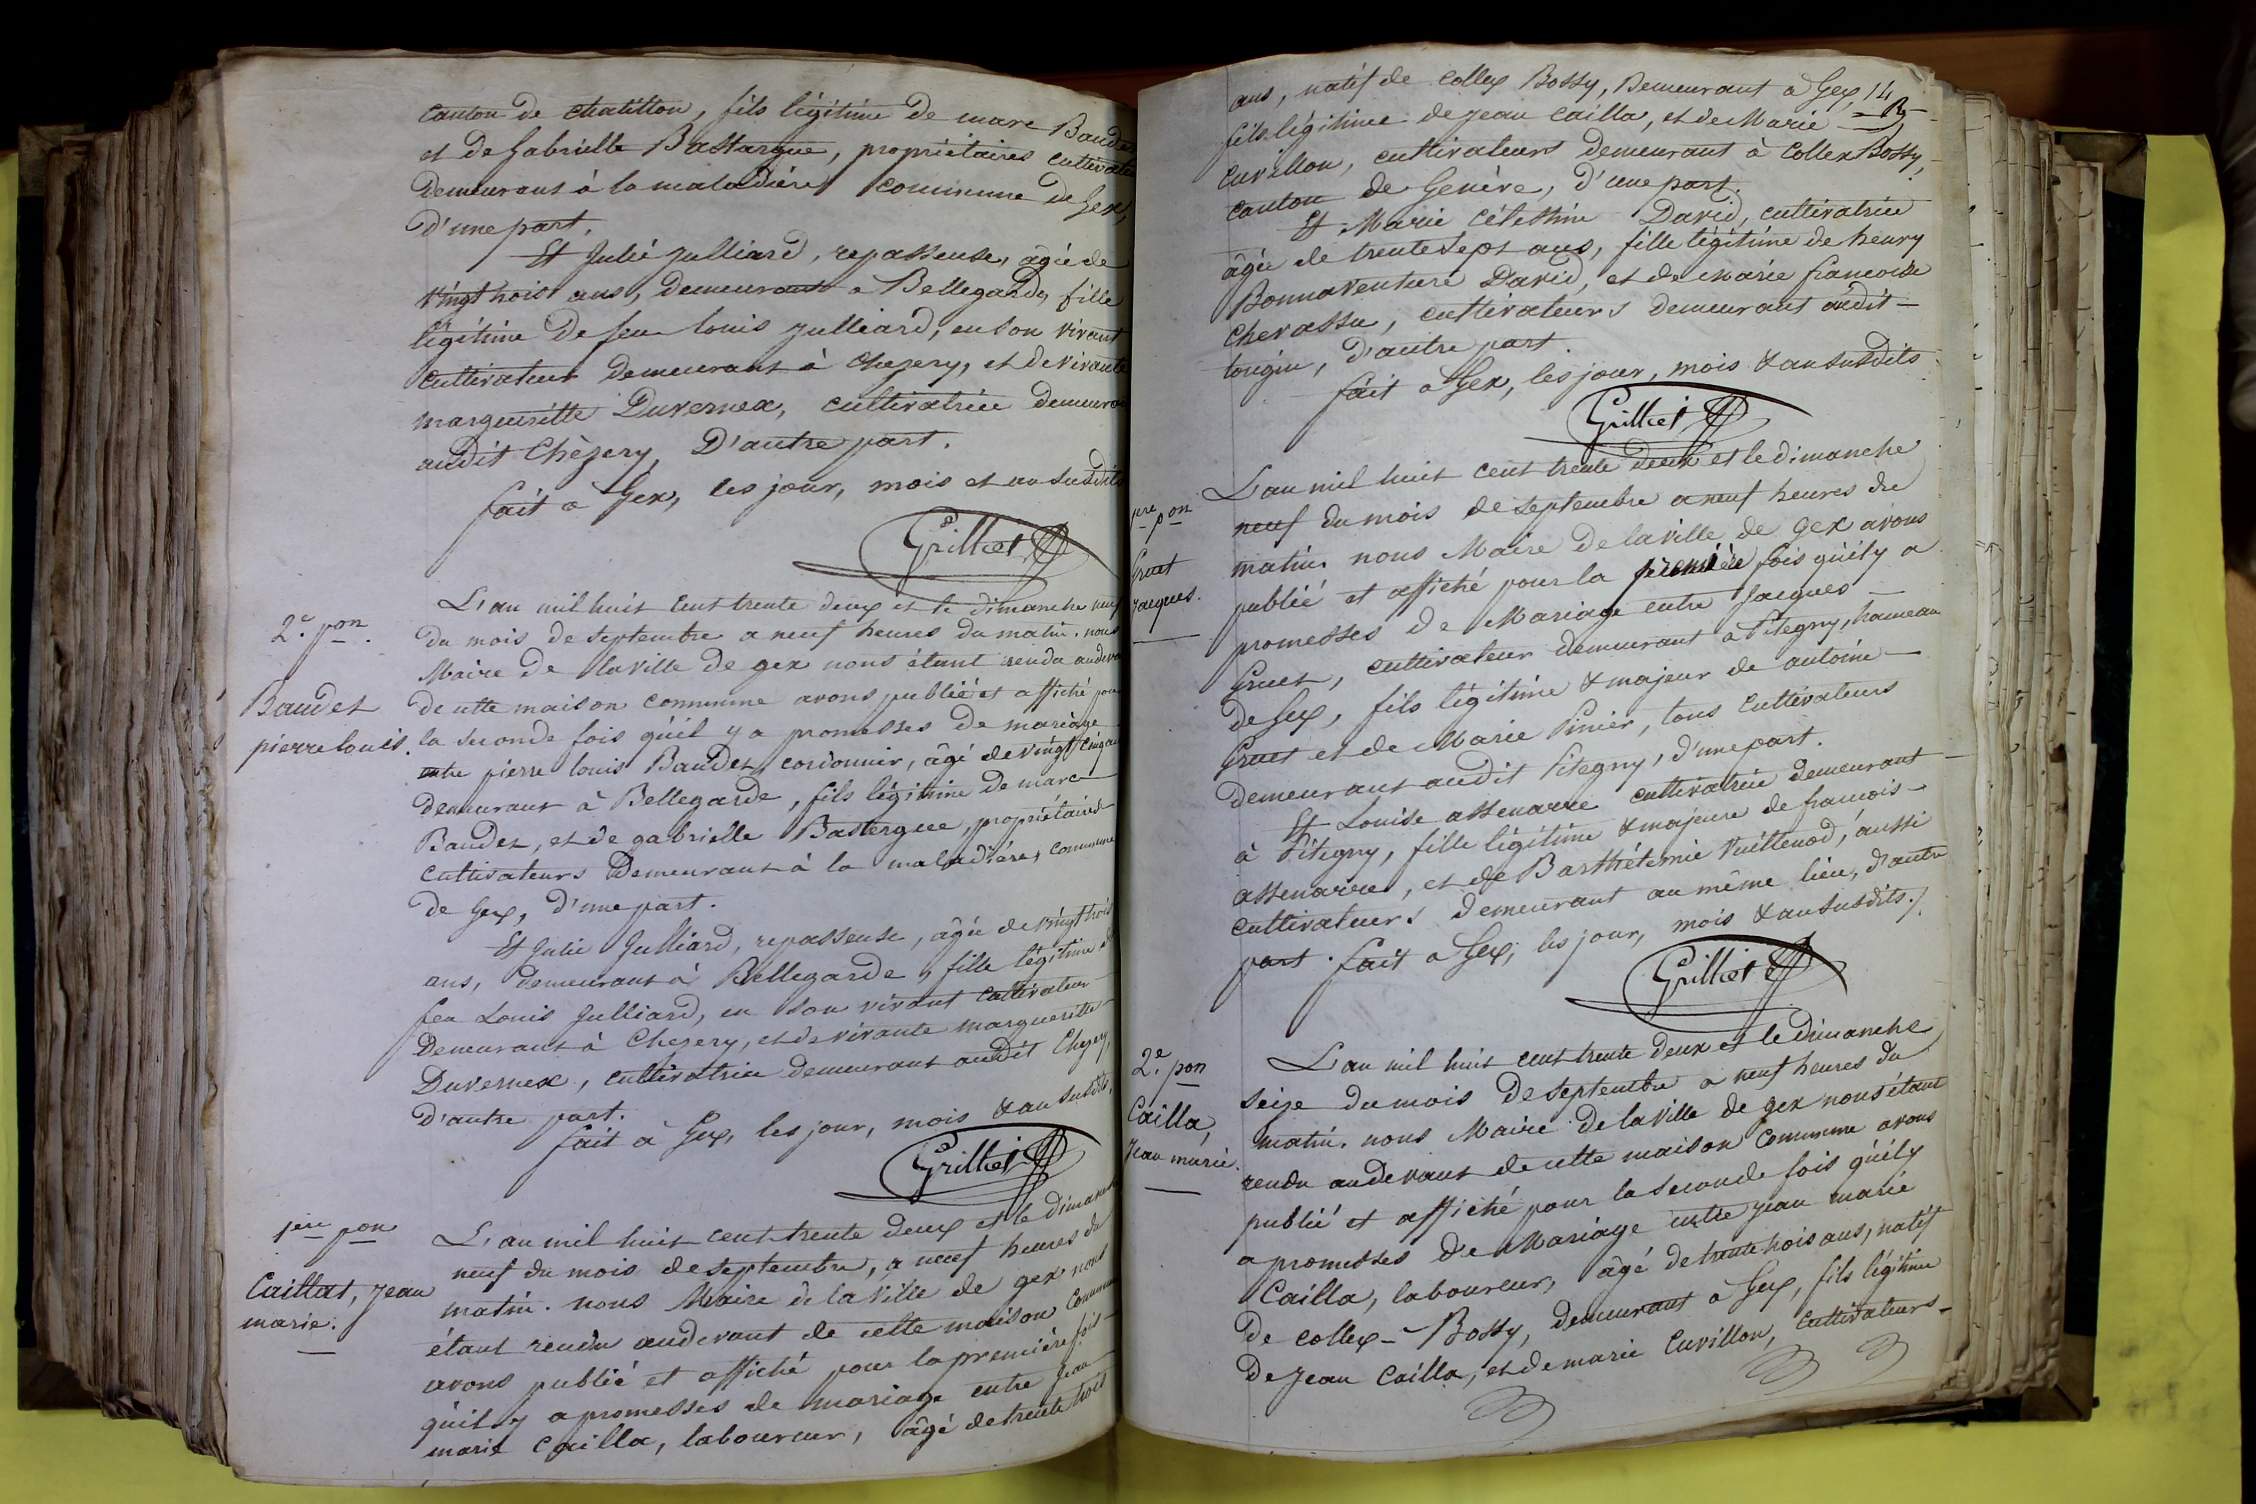 canton de chatillon, fils légitime de marc Baudet
et de Gabrielle Bastargue, propriétaires cultivate
Demeurant à la maladière, commune de Gex,
d'une part.
Et Julie Julliard, repasseuse, âgée de
vingt trois ans, Demeurant a Bellegarde, fille
légitime De feu Louis Julliard, en son vivant
cultivateur demeurant à Chezery, et de vivante
margueritte Duvernex, cultivatrice demeurant
audit Chèzery, D'autre part.
fait a Gex, les jour, mois et an susdits
Grillet
2.e p.on
Baudet
pierre louis.
L'an mil huit cent trente deux et le dimanche neuf
du mois de septembre a neuf heures du matin. nous
Maire de la ville de gex nous étant rendu audevant
de cette maison commune avons publié et affiché pour
la seconde fois qu'il y a promesses de mariage
entre pierre louis Baudet, cordonnier, âgé de vingt cinq ans
demeurant à Bellegarde, fils légitime de marc
Baudet, et de gabrielle Bastergue, propriétaires
cultivateurs Demeurant à la maladière, commune
de Gex, d'une part.
Et Julie Julliard, repasseuse, âgée de vingt trois
ans, demeurant à Bellegarde, fille légitime de
feu Louis Julliard, en son vivant cultivateur
Demeurant à Chezery, et de vivante marguerite
Duvernex, cultivatrice demeurant audit Chezery,
d'autre part.
fait à Gex, les jour, mois & an susdits,
Grillet
1ere pon
Caillat, Jean
marie.
L'an mil huit cent trente deux et le dimanche
neuf du mois de septembre, a neuf heures du
matin. nous Maire de la ville de gex nous
étant rendu audevant de cette maison commune
avons publié et affiché pour la première fois
qu'il y a promesses de mariage entre Jean
marie Cailla, laboureur, âgé de trente trois
14
ans, natif de Collex Bossy, Demeurant a Gex,
fils légitime de Jean Cailla, et de Marie
Cuvillon, cultivateurs demeurant à Collex Bossy,
canton de Genève, d'une part.
Et Marie Célestine David, cultivatrice
âgée de trente sept ans, fille légitime de henry
Bonnaventure David, et de Marie francoise
Chevassu, cultivateurs demeurant audit
tougin, d'autre part.
fait a Gex, les jour, mois & an susdits
Grillet
1re pon
Gruet
Jacques.
L'an mil huit cent trente deux et le dimanche
neuf du mois de septembre a neuf heures du
matin. nous Maire de la ville de gex avons
publié et affiché pour la première fois qu'il y a
promesses de Mariage entre Jacques
Gruet, cultivateur demeurant à Pitegny, hameau
de Gex, fils légitime & majeur de antoine
Gruet et de Marie Pinier, tous cultivateurs
demeurant audit Pitegny, d'une part.
Et Louise assenarre cultivatrice demeurant
à Pitegny, fille légitime & majeure de francois
assenarre, et de Barthélemie Vuillenod, aussi
cultivateurs demeurant au même lieu, d'autre
part. fait a Gex, les jour, mois & an susdits./.
Grillet
2.e pon
Cailla,
Jean marie.
L'an mil huit cent trente deux et le dimanche
seize du mois de septembre a neuf heures du
matin. nous Maire de la ville de gex nous étant
rendu audevant de cette maison commune avons
publié et affiché pour la seconde fois qu'il y
a promesses de Mariage entre Jean marie
Cailla, laboureur, âgé de trente trois ans, natif
de collex-Bossy, demeurant a Gex, fils légitime
de Jean Cailla, et de marie Cuvillon, cultivateurs